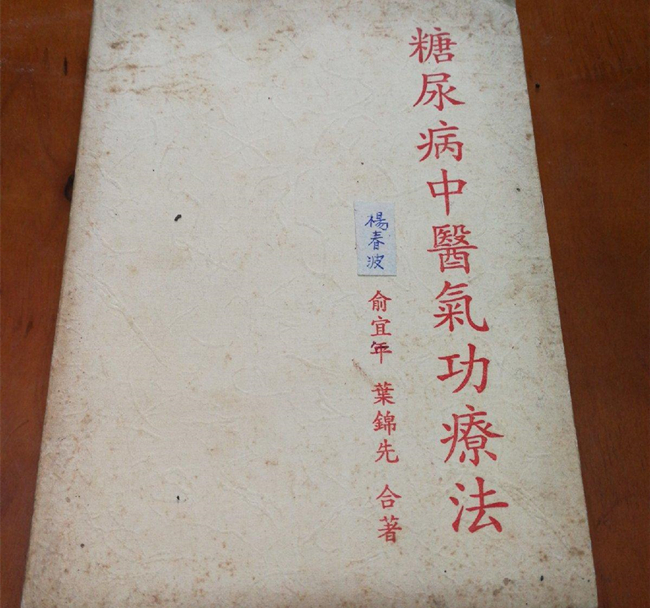 糖尿病中醫氣功療法
楊春波
俞宜年 葉錦先 合著